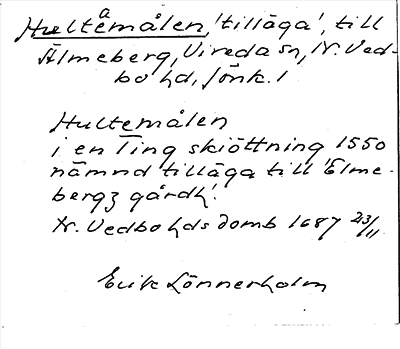 Hultemålen, 'tilläga', till
a
Älmeberg, Vireda sn, N. Ved-
bo hd, Jönk. l
Hultemålen
i en Ting skiöttning 1550
nämnd tilläga till 'Elme-
bergz gårdh'.
N. Vedbo hds domb 1687 23/11
Erik Lönnerholm